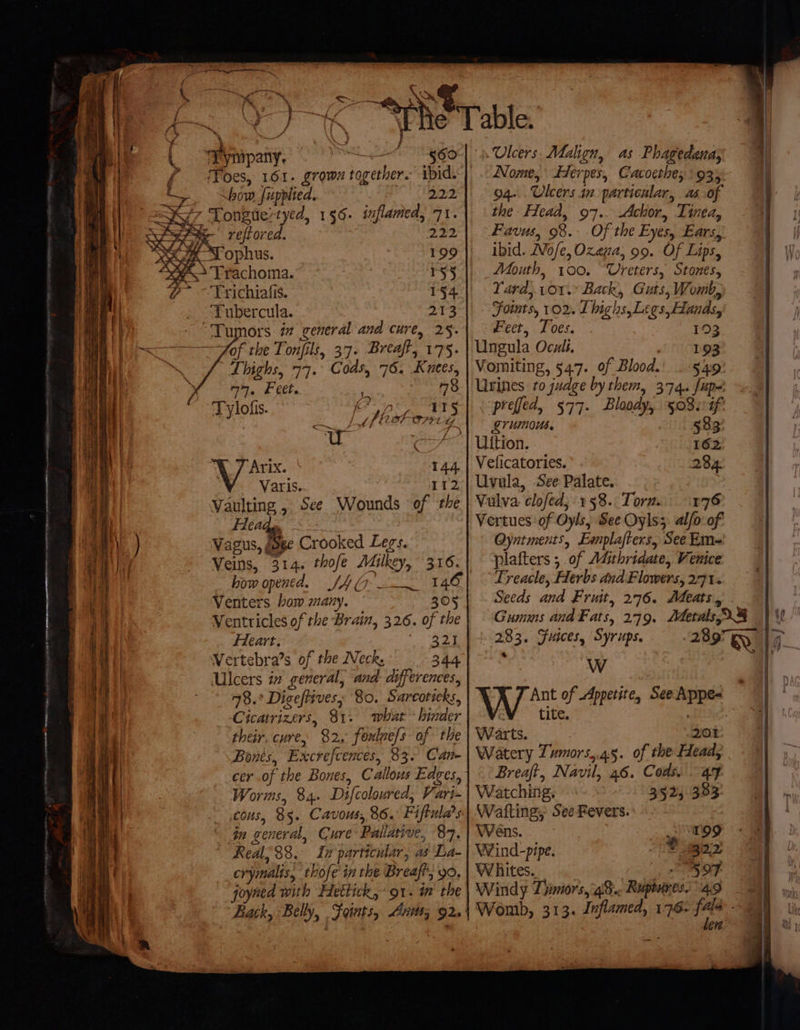 The Table.
Tympany. 560
Toes, 161. grown together. ibid.
how ſupplied. 222
Tongue-tyed, 156. inflamed, 71.
reſtored. 222
Tophus. 199
Trachoma. 155
Trichiaſis. 154
Tubercula. 213
Tumors in general and cure, 25.
of the Tonſils, 37. Breaſt, 175.
Thighs, 77. Cods, 76. Knees,
77. Feet. 78
Tyloſis. 115
U
VArix. 144
Varis. 112
Vaulting, See Wounds of the
Head.
Vagus, See Crooked Legs.
Veins, 314. thoſe Milkey, 316.
how opened. 146
Venters how many. 305
Ventricles of the Brain, 326. of the
Heart. 321
Vertebra's of the Neck, 344
Ulcers in general, and differences,
78. Digeſtives, 80. Sarcoticks,
Cicatrizers, 81. what hinder
their cure, 82, foulneſs of the
Bones, Excreſcences, 83. Can-
cer of the Bones, Callous Edges,
Worms, 84. Diſcoloured, Vari-
cous, 85. Cavous, 86. Fiſtula's
in general, Cure Pallative, 87.
Real, 88. In particular, as La-
crymalis, thoſe in the Breaſt, 90.
joyned with Hettick, 91. in the
Back, Belly, Joints, Anus, 92.
Ulcers Malign, as Phagedena,
Nome, Herpes, Cacoethe, 93,
94. Ulcers in particular, as of
the Head, 97. Achor, Tinea,
Favus, 98. Of the Eyes, Ears,
ibid. Noſe, Ozena, 99. Of Lips,
Mouth, 100. Ureters, Stones,
Yard, 101. Back, Guts, Womb,
Joints, 102. Thighs, Legs, Hands,
Feet, Toes. 103
Ungula Oculi. 193
Vomiting, 547. of Blood. 549
Urines to judge by them, 374. ſup-
preſſed, 577. Bloody, 508. if
grumous. 583
Uſtion. 162
Veſicatories. 284
Uvula, See Palate.
Vulva cloſed, 158. Torn. 176
Vertues of Oyls, See Oyls; alſo of
Oyntments, Emplaſters, See Em-
plaſters; of Mithridate, Venice
Treacle, Herbs and Flowers, 271.
Seeds and Fruit, 276. Meats,
Gumms and Fats, 279. Metals,
283. Juices, Syrups. 289
W
WAnt of Appetite, See Appe-
tite.
Warts. 201
Watery Tumors, 45. of the Head,
Breaſt, Navil, 46. Cods. 47
Watching. 352, 383
Waſting, See Fevers.
Wens. 199
Wind-pipe. 322
Whites. 597
Windy Tumors, 48. Ruptures. 49
Womb, 313. Inflamed, 176. fal-
len